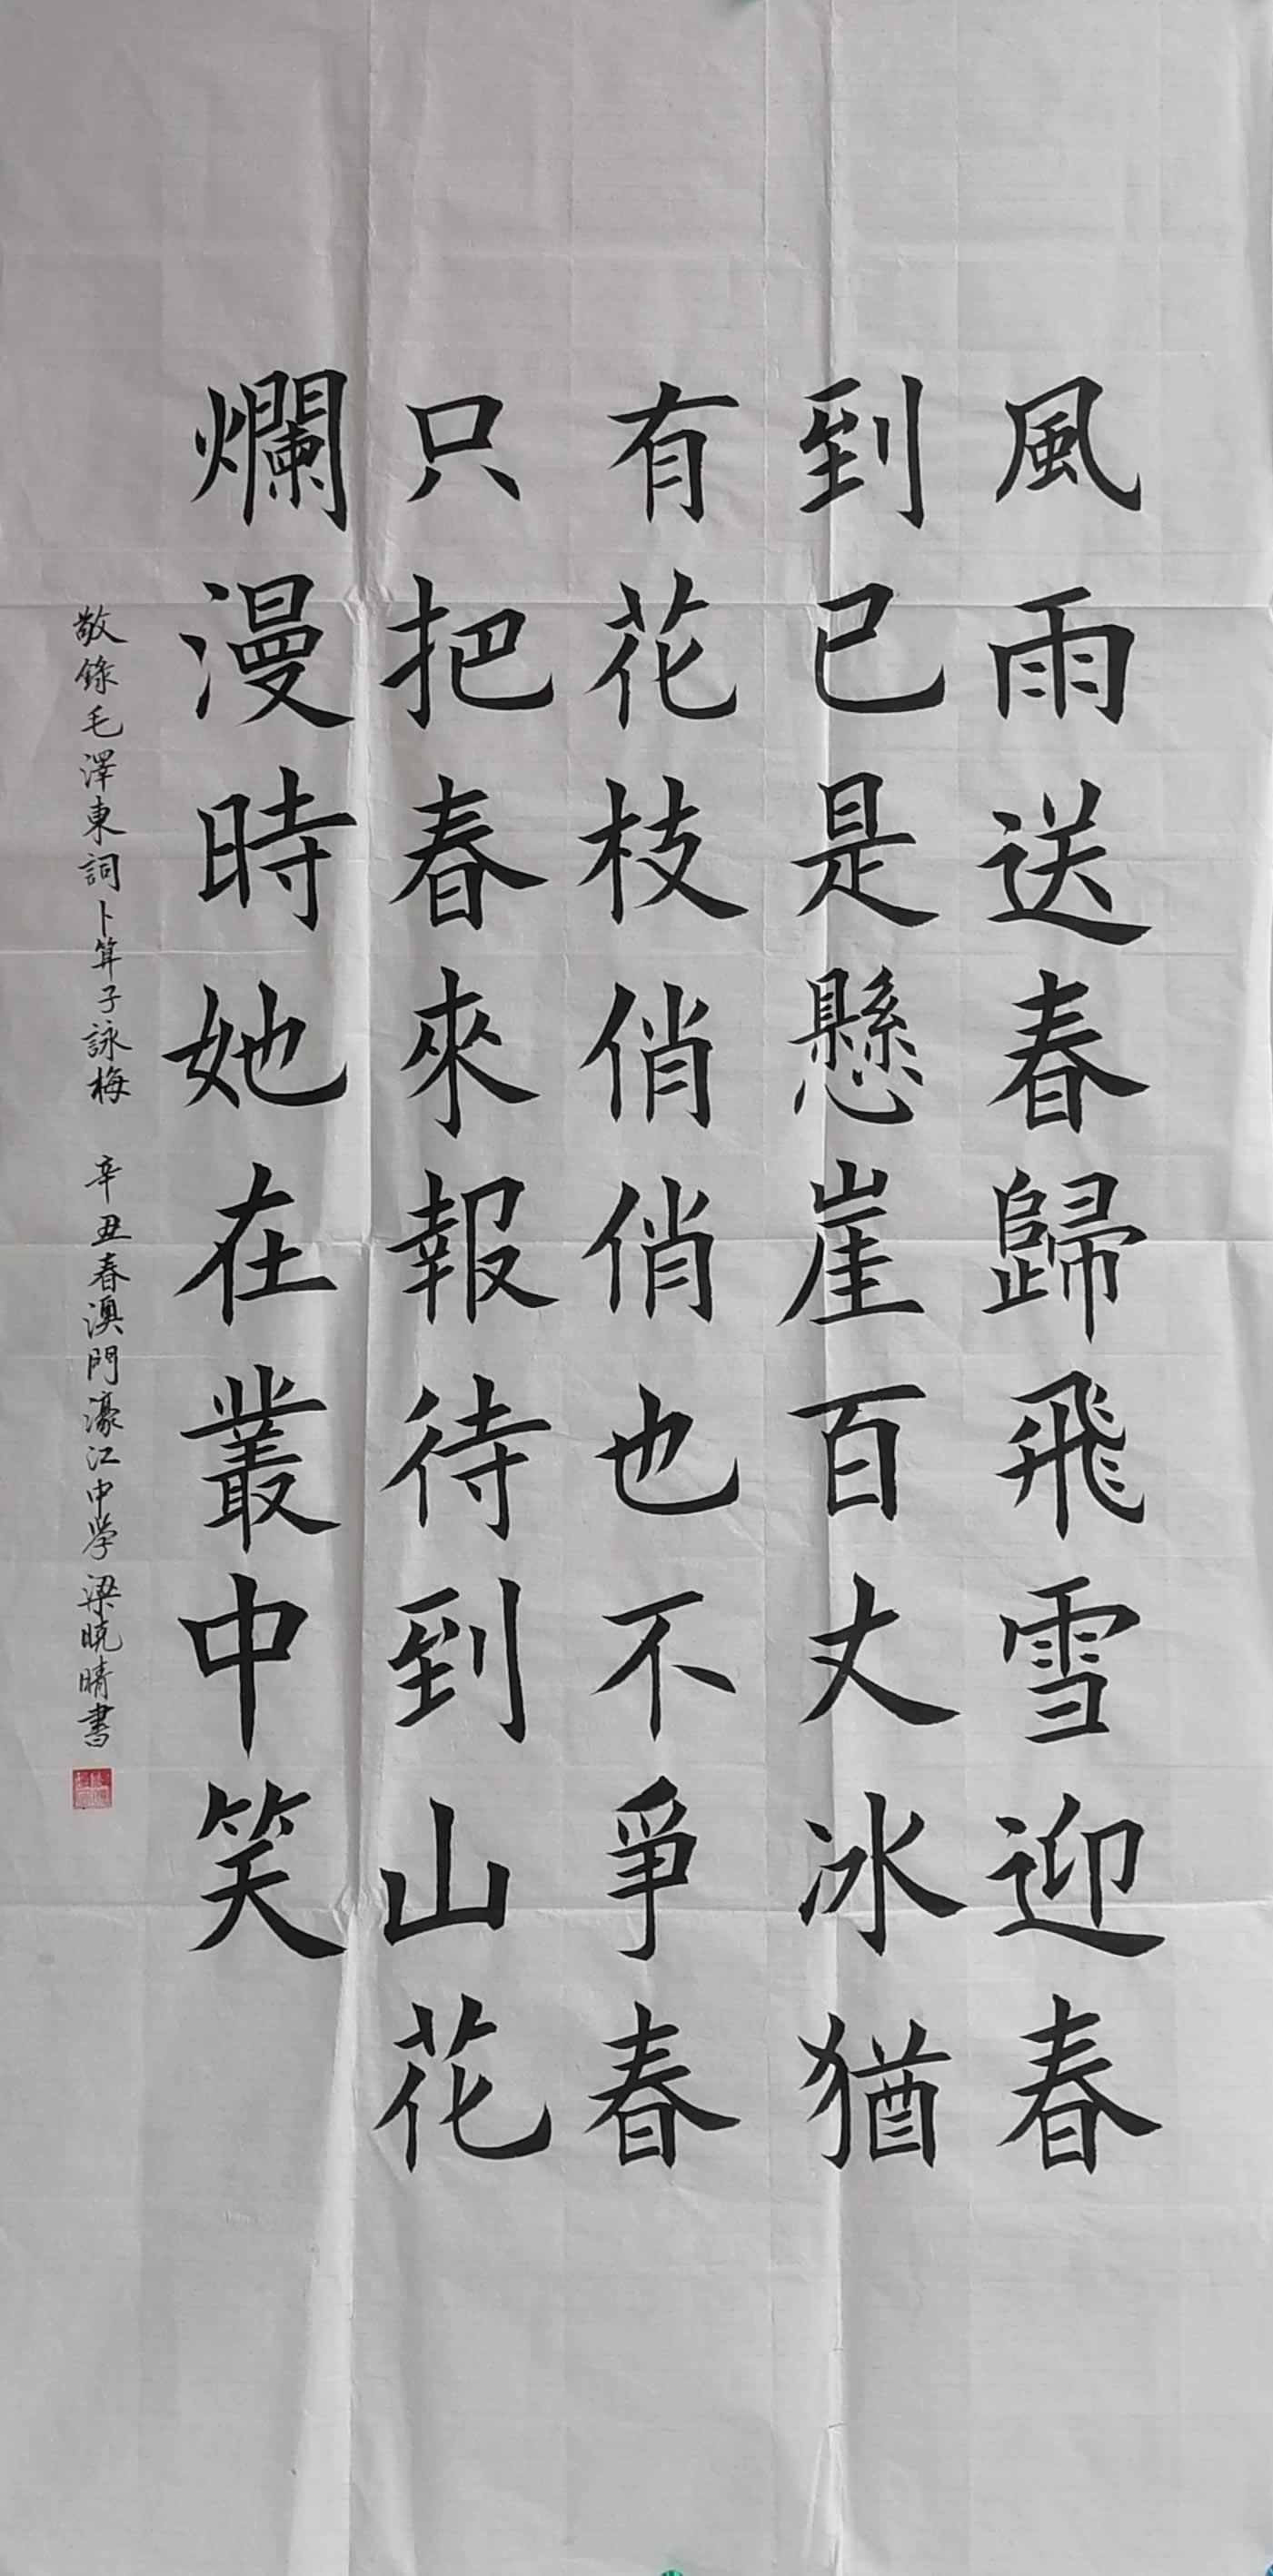 風雨送春歸飛雪迎春
到已是懸崖百丈冰猶
有花枝俏俏也不爭春
只把春來報待到山花
爛漫時她在叢中笑
敬錄毛澤東詞卜算子詠梅 辛丑春澳門濠江中學梁曉晴書